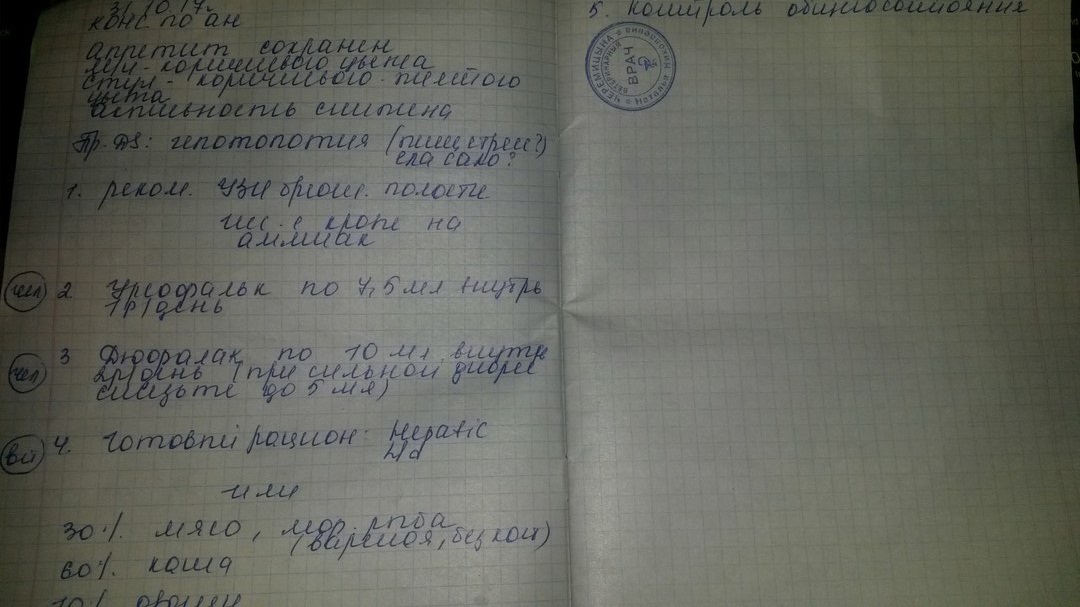 31.10.17
конс по ан
Аппетит сохранен
кал - коричневого цвета
стул - коричнвого-темного
цвета
активность снижена
Пр. DS: гепотопотия (
ела сало?
1. реком. УЗИ брюш. полости
исс. с крови на
аммиак
чел 2 Урсофальк по 7,5 мл внутрь
1р/день
чел 3 Дюфалак по 10 мл внутрь
2р/день (при сильной диарее
снизьте до 5 мл)
вет 4. Готовый рацион: Hepatic
или
30% мясо, мор. рыба
(вареная, без кост)
60% каша
10% овощи
5. контроль общего состояния
ЧЕРЕМИЦЫНА Наталия
ВЕТЕРИНАРНЫЙ
ВРАЧ